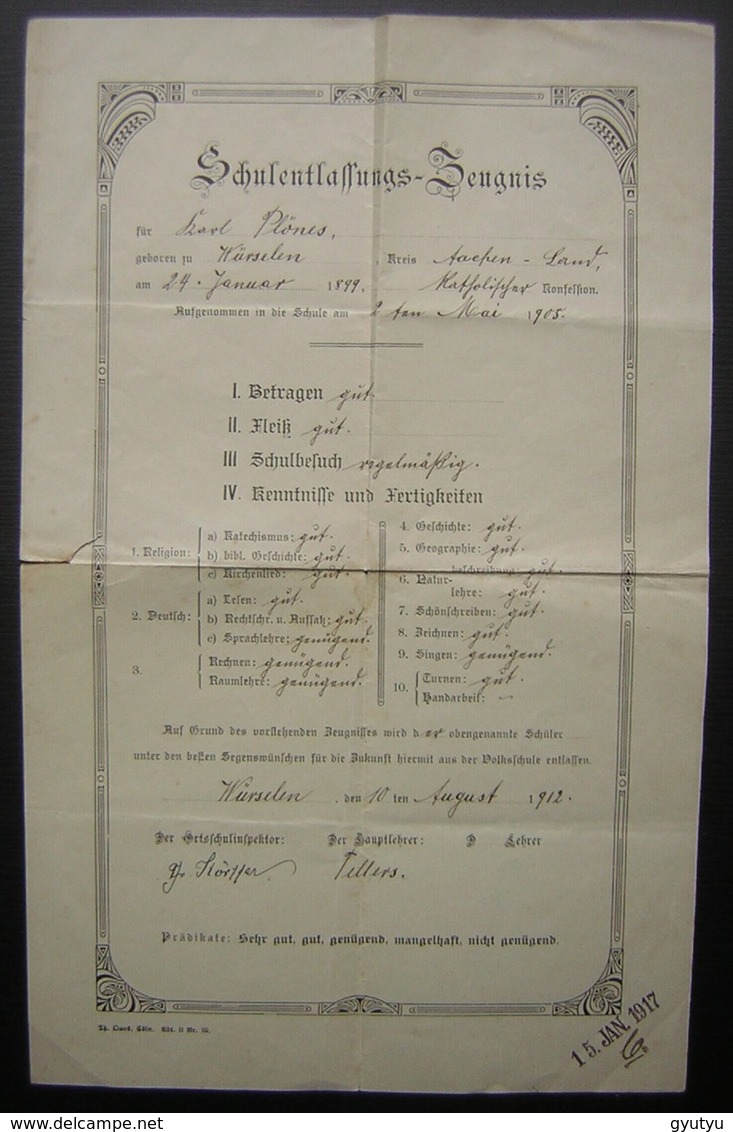 Schulentlassungs-Zeugnis
für Karl Plönes,
geboren zu Würselen, Kreis Aachen-Land,
am 24. Januar 1899. Katholischer Konfession.
Aufgenommen in die Schule am 2 ten Mai 1905.
I. Betragen gut.
II. Fleiß gut.
III Schulbesuch regelmäßig.
IV. Kenntnisse und Fertigkeiten
1. Religion:
a) Katechismus: gut.
b) bibl. Geschichte: gut.
c) Kirchenlied: gut.
2. Deutsch:
a) Lesen: gut.
b) Rechtschr. u. Aufsatz: gut.
c) Sprachlehre: genügend.
3.
Rechnen: genügend.
Raumlehre: genügend.
4. Geschichte: gut.
5. Geographie: gut.
6. Natur-
beschreibung gut.
lehre: gut.
7. Schönschreiben: gut.
8. Zeichnen: gut.
9. Singen: genügend.
10.
Turnen: gut.
Handarbeit: –
Auf Grund des vorstehenden Zeugnisses wird der obengenannte Schüler
unter den besten Segenswünschen für die Zukunft hiermit aus der Volksschule entlassen.
Würselen, den 10 ten August 1912.
Der Ortsschulinspektor: Der Hauptlehrer: D Lehrer
Tellers.
Prädikate: Sehr gut, gut, genügend, mangelhaft, nicht genügend.
Cöln. Abt. II Nr. 10.
15. JAN. 1917
gyutyu